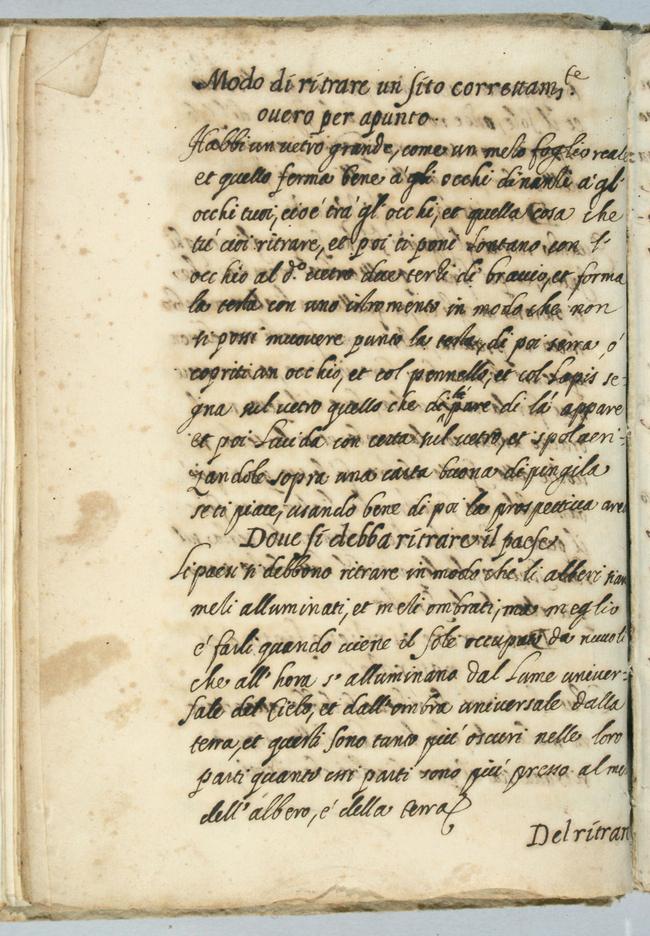 Modo di ritrare un sito correttam.te
overo per apunto.
Habbi un vetro grande, come un mezo foglio reale
et quello ferma bene a gli occhi dinanzi a' gl'
occhi tuoi, cioe' trà gl' occhi, et quella cosa che
tu' vuoi ritrare, et poi ti poni lontano con l'
occhio al d.o vetro due terzi di bracio, et ferma
la testa con uno istromento in modo che non
ti possi muovere punto la testa, di poi serra, ó
copriti un occhio, et col pennello, et col lapis se-
gna sul vetro quello che di la' pare di lá appare
et poi lucida con carta sul vetro, et spolveri-
zandole sopra una carta buona dipingila
se ti piace, usando bene di poi la prospettiva are
Dove si debba ritrare il paese
Li paesi si debbono ritrare in modo che li alberi sian
mezi alluminati, et mezi ombrati, ma meglio
é farli quando viene il sole occupato da nuvoli
che all' hora s' alluminano dal lume univer-
sale del Cielo, et dall' ombra universale dalla
terra, et questi sono tanto piu' oscuri nelle loro
parti quanto essi parti sono piu' presso al me
dell' albero, e' della terra
Del ritrar